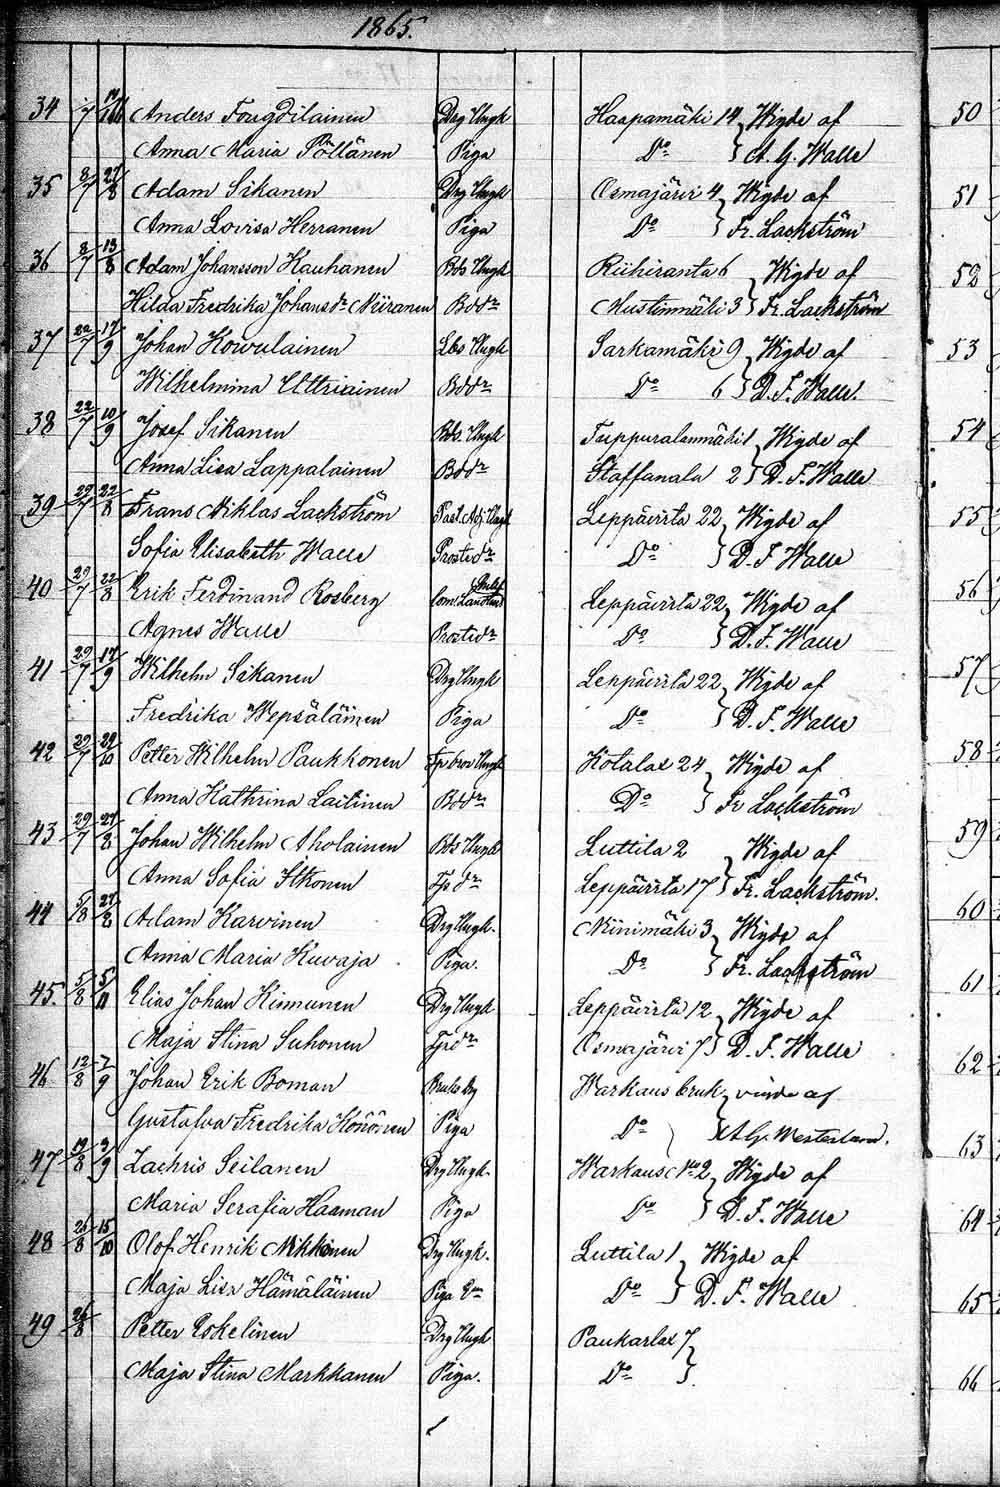 1865.
34 Anders Fougdilainen Drg Ungk Haapamäki 14 Wigde af
Anna Maria Pöllänen Piga Do A. G. Walle
35 8/7 27/8 Adam Sikanen Drg Ungk Osmajärvi 4 Wigde af
Anna Lovisa Herranen Piga Do Fr. Lackström
36 8/7 13/8 Adam Johansson Kauhanen Bds Ungk Riihiranta 6 Wigde af
Hilda Fredrika Johansdr Niiranen Bddr Mustinmäki 3 Fr. Lackström
37 22/7 17/9 Johan Kowulainen Lbs Ungk Sarkamäki 9 Wigde af
Wilhelmina Uttriainen Bddr Do 6 D. F. Walle.
38 22/7 10/9 Josef Sikanen Bds. Ungk Tuppuralanmäki 1 Wigde af
Anna Lisa Lappalainen Bddr Staffanala 2 D. F. Walle
39 29/7 22/8 Frans Niklas Lackström Past. Adj. Ungk Leppävirta 22 Wigde af
Sofia Elisabeth Walle Prostedr Do D. F Walle
40 29/7 22/8 Erik Ferdinand Rosberg Com. Leppävirta 22 Wigde af
Agnes Walle Prostedr Do D. F. Walle
41 29/7 17/9 Wilhelm Sikanen Drg Ungk Leppävirta 22 Wigde af
Fredrika Wepsäläinen Piga Do D. F. Walle
42 29/7 29/10 Petter Wilhelm Paukkonen Tp bror Ungk Kotalax 24 Wigde af
Anna Kathrina Laitinen Bddr Do Fr Lackström
43 29/7 27/8 Johan Wilhelm Aholainen Bds Ungk Luttila 2 Wigde af
Anna Sofia Itkonen Tp dr Leppävirta 17 Fr. Lackström.
44 5/8 27/8 Adam Karvinen Drg Ungk. Niinimäki 3 Wigde af
Anna Maria Kuvaja Piga. Do Fr. Lackström
45. 5/8 5/11 Elias Johan Kinnunen Drg Ungk Leppävirta 12 Wigde af
Maja Stina Suhonen Tpdr Osmajärvi 7 D. F. Walle
46 12/8 7/9 Johan Erik Boman Bruks Drg Warkaus bruk vigde af
Gustafva Fredrika Könönen Piga Do A. G. Westerlund.
47 19/8 3/9 Zachris Seilanen Drg Ungk. Warkaus No 2 Wigde af
Maria Serafia Haaman Piga Do D. F. Walle
48 26/8 15/10 Olof Henrik Nikkonen Drg Ungk. Luttila 1 Wigde af
Maja Lisa Hämäläinen Piga Do D. F. Walle
49 26/8 Petter Eskelinen Drg Ungk Paukarlax 7
Maja Stina Markkanen Piga. Do
50
51
52
53
54
55
56
57
58
59
60
61
62
63
64
65
66